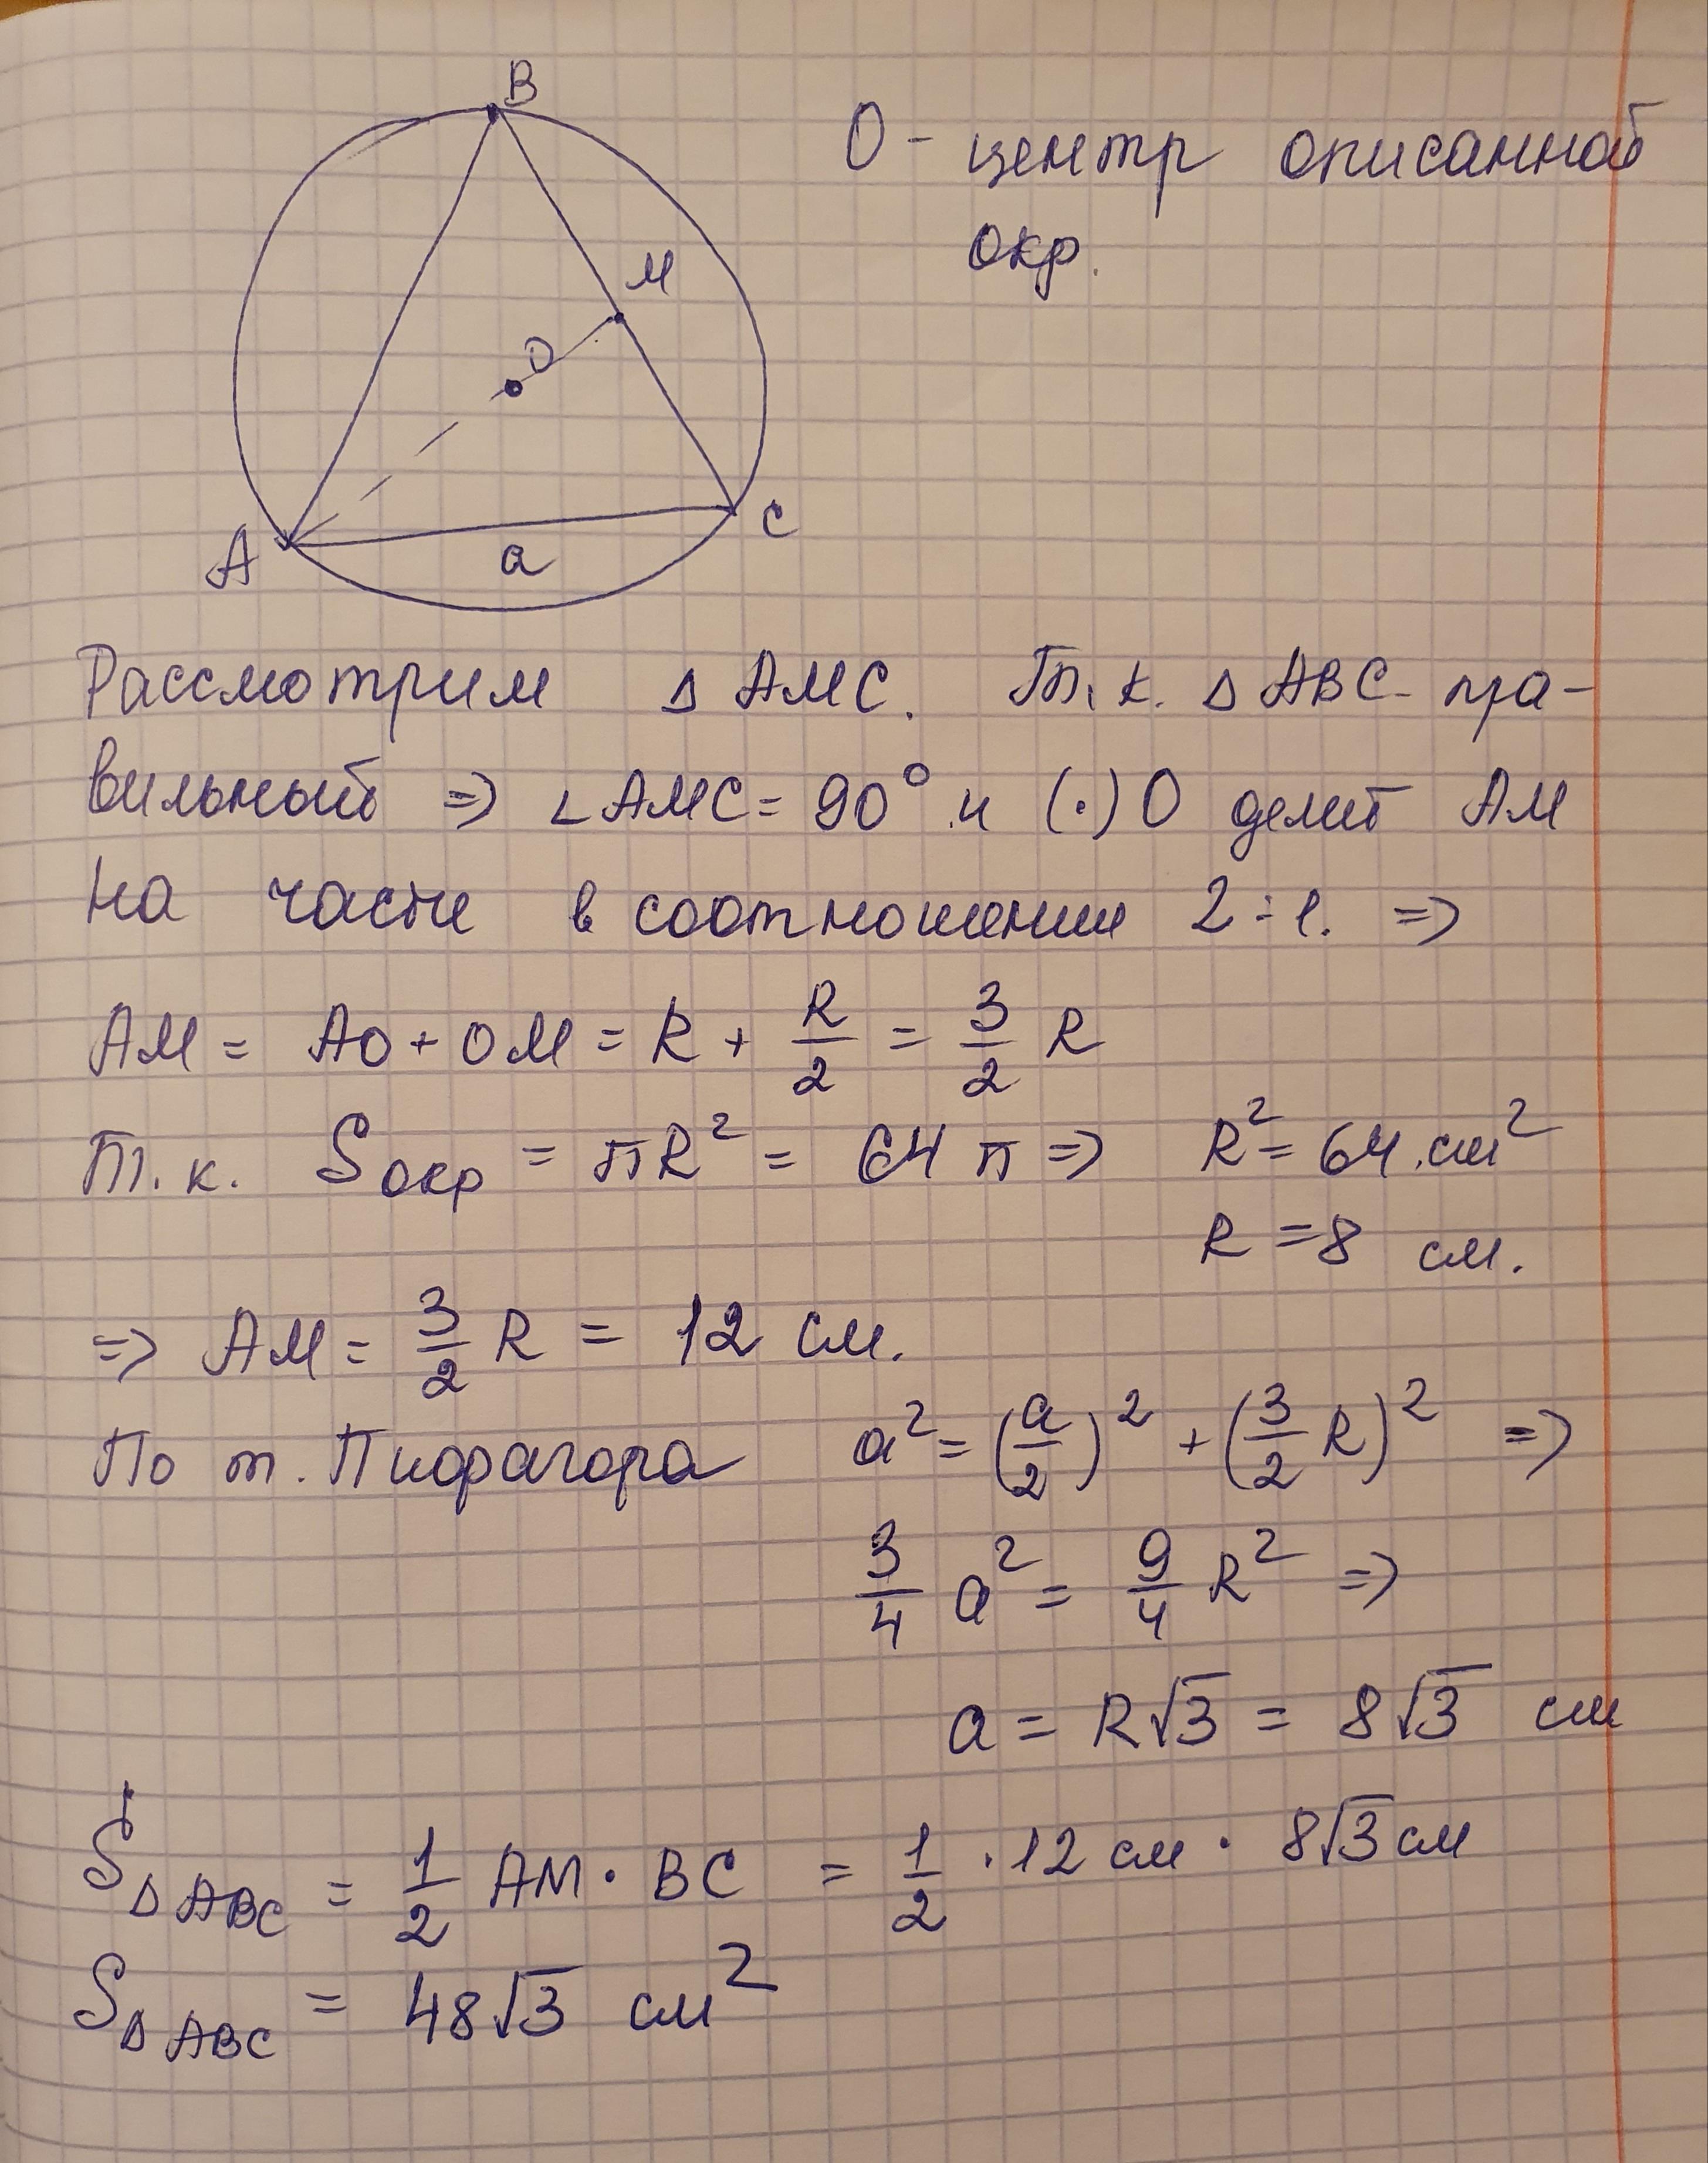 B
O - центр описанной
окр.
M
O
A
C
a
Рассмотрим Δ AMC. Т.к. Δ ABC - пра-
вильный => ∠AMC = 90° и (·) O делит AM
на части в соотношении 2:1. =>
AM = AO + OM = R + R/2 = 3/2 R
Т.к. Sокр = πR² = 64 π => R² = 64 см²
R = 8 см.
=> AM = 3/2 R = 12 см.
По т. Пифагора a² = (a/2)² + (3/2 R)² =>
3/4 a² = 9/4 R² =>
a = R√3 = 8√3 см
SΔABC = 1/2 AM · BC = 1/2 · 12 см · 8√3 см
SΔABC = 48√3 см²